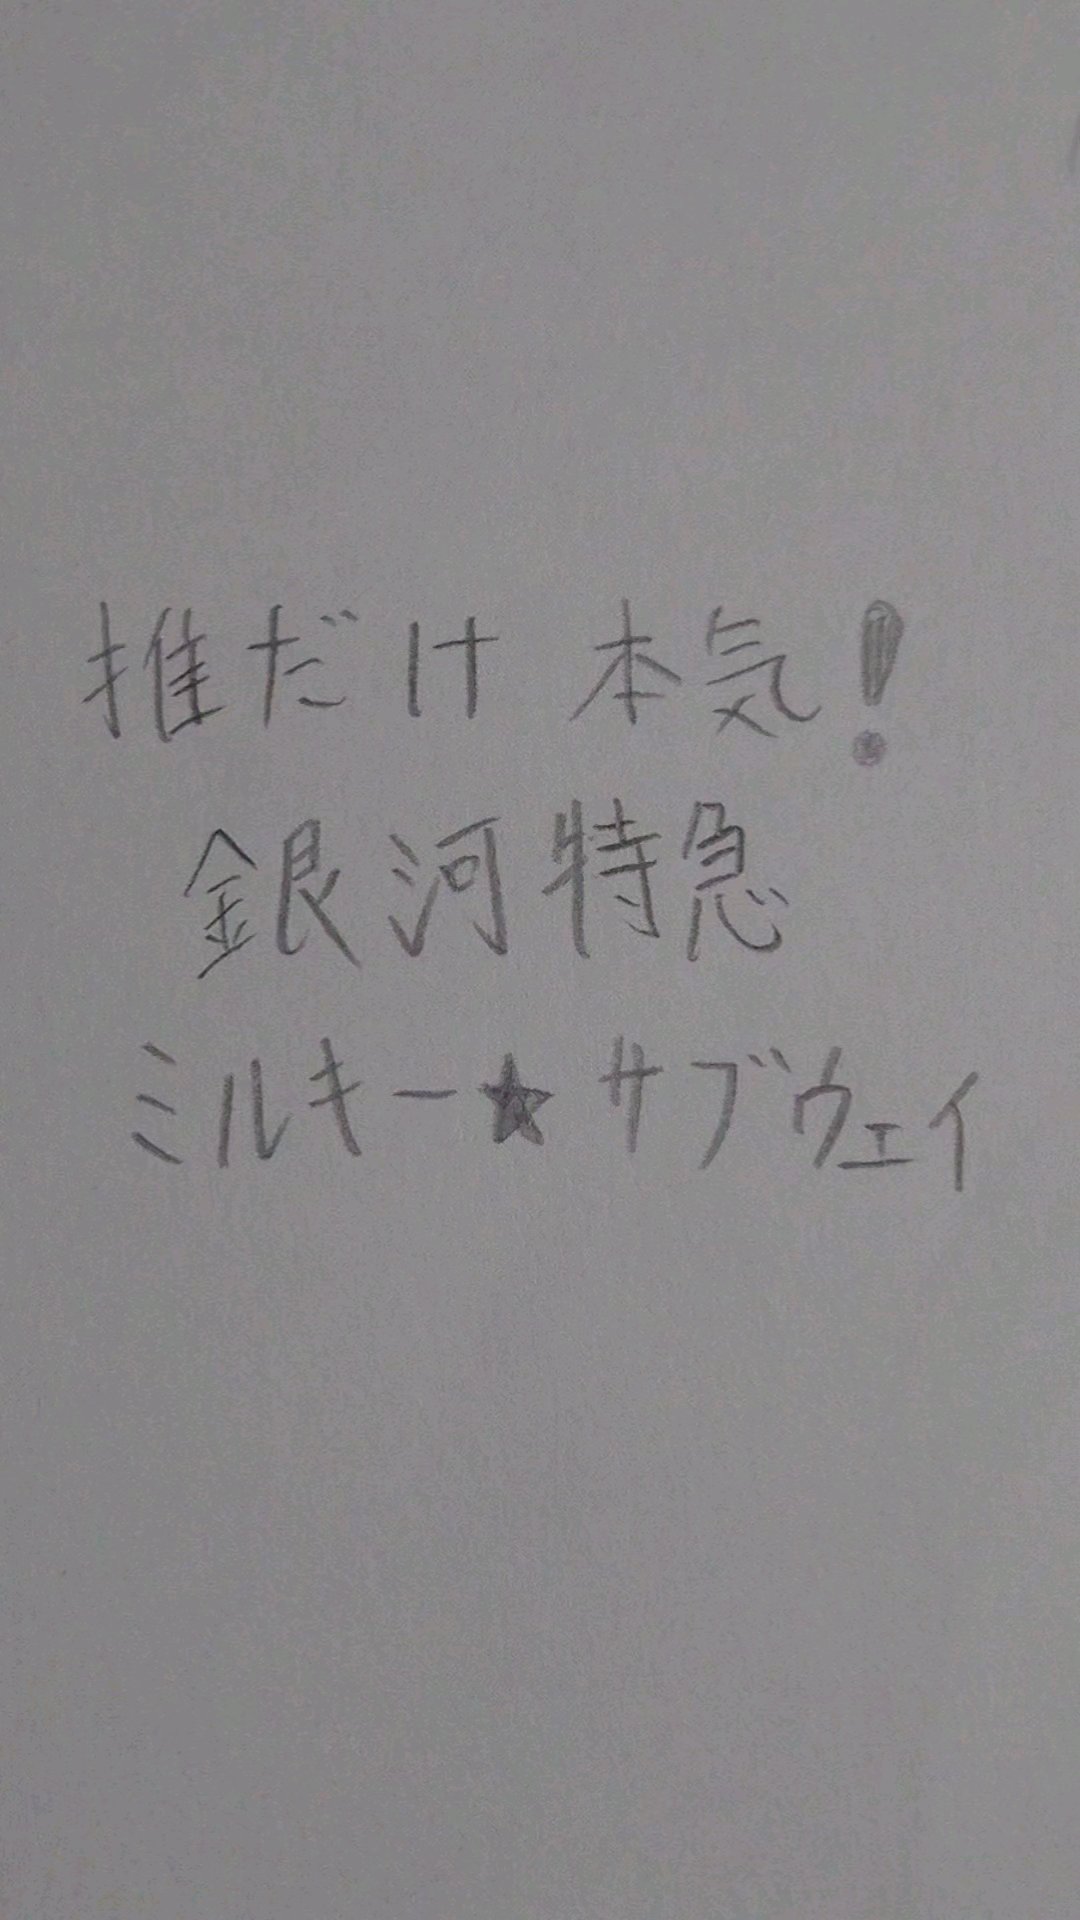 推だけ 本気!
銀河特急
ミルキー★サブウェイ